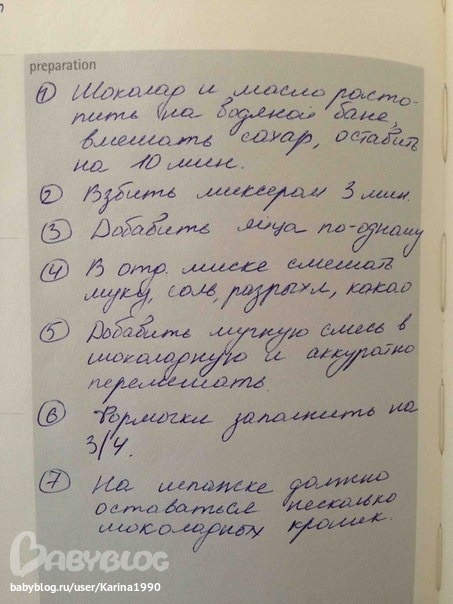 preparation
① Шоколад и масло расто-
пить на водяной бане,
вмешать сахар, оставить
на 10 мин.
② Взбить миксером 3 мин.
③ Добавить яйца по-одному
④ В отд. миске смешать
муку, соль, разрыхл, какао
⑤ Добавить мучную смесь в
шоколадную и аккуратно
перемешать.
⑥ Формочки заполнить на
3/4.
⑦ На шпажке должно
оставаться несколько
шоколадных крошек.
BABYBLOG
babyblog.ru/user/Karina1990